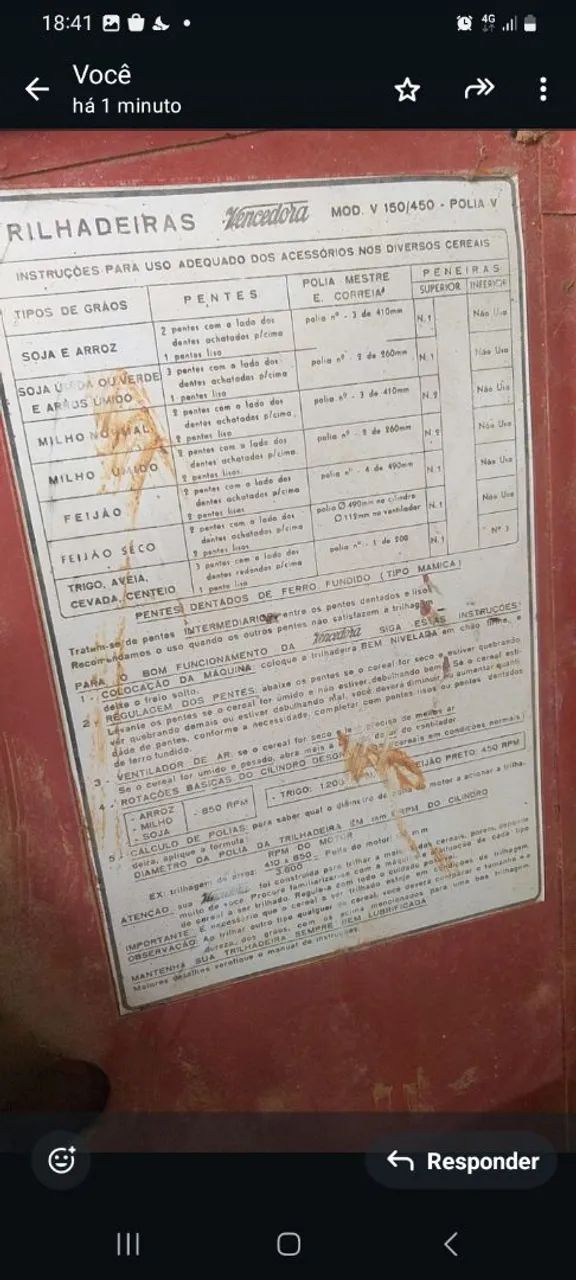 18:41
4G
Você
há 1 minuto
TRILHADEIRAS Vencedora MOD. V 150/450 - POLIA V
INSTRUÇÕES PARA USO ADEQUADO DOS ACESSÓRIOS NOS DIVERSOS CEREAIS
TIPOS DE GRÃOS PENTES POLIA MESTRE E CORREIA PENEIRAS
SUPERIOR INFERIOR
SOJA E ARROZ 2 pentes com o lado dos dentes achatados p/cima 1 pentes liso polia nº - 3 de 410mm N.1 Não Usa
SOJA ÚMIDA OU VERDE E ARROS ÚMIDO 3 pentes com o lado dos dentes achatados p/cima 1 pentes liso polia nº - 2 de 260mm N.1 Não Usa
MILHO NORMAL 2 pentes com o lado dos dentes achatados p/cima. 2 pentes liso polia nº - 3 de 410mm N.2 Não Usa
MILHO ÚMIDO 2 pentes com o lado dos dentes achatados p/cima 2 pentes lisos. polia nº - 2 de 260mm N.2 Não Usa
FEIJÃO 2 pentes com o lado dos dentes achatados p/cima 2 pentes lisos polia nº - 4 de 490mm N.1 Não Usa
FEIJÃO SÊCO 2 pentes com o lado dos dentes achatados p/cima 2 pentes lisos polia Ø 490mm no cilindro Ø 112mm no ventilador N.1 Não Usa
TRIGO, AVEIA, CEVADA, CENTEIO 3 pentes com o lado dos dentes redondos p/cima 1 pente liso polia nº - 1 de 200 N.1 Nº 3
PENTES DENTADOS DE FERRO FUNDIDO (TIPO MAMICA)
Tratam-se de pentes INTERMEDIARIOS entre os pentes dentados e lisos
Recomendamos o uso quando os outros pentes não satisfazem a trilhagem
PARA O BOM FUNCIONAMENTO DA Vencedora SIGA ESTAS INSTRUÇÕES:
1 - COLOCAÇÃO DA MÁQUINA: coloque a trilhadeira BEM NIVELADA em chão firme, e
deixe o freio solto.
2 - REGULAGEM DOS PENTES: abaixe os pentes se o cereal for seco e estiver quebrando
Levante os pentes se o cereal for úmido e não estiver debulhando bem. Se o cereal esti-
ver quebrando demais ou estiver debulhando mal, você deverá diminuir ou aumentar quanti
dade de pentes, conforme a necessidade, completar com pentes lisos ou pentes dentados
de ferro fundido.
3 - VENTILADOR DE AR: se o cereal for seco precisa de menos ar
Se o cereal for úmido e pesado, abra mais a do ar do ventilador
4 - ROTAÇÕES BÁSICAS DO CILINDRO (cereais em condições normais)
- ARROZ
- MILHO - 850 RPM - TRIGO: 1.200 FEIJÃO PRETO: 450 RPM
- SOJA
5 - CÁLCULO DE POLIAS: para saber qual o diâmetro da polia do motor a acionar a trilha-
deira, aplique a formula:
DIAMETRO DA POLIA DA TRILHADEIRA EM mm RPM DO CILINDRO
RPM DO MOTOR
EX: trilhagem de arroz: 410 x 850 = Polia do motor: mm
3.600
ATENÇÃO sua Vencedora foi construida para trilhar a maioria dos cereais, porem, depende
muito de voce. Procure familiarizar-se com a máquina e situação de cada tipo
de cereal a ser trilhado. Regule-a com todo o cuidado
IMPORTANTE: É necessário que o cereal a ser trilhado esteja em condições de trilhagem.
OBSERVAÇÃO: Ao trilhar outro tipo qualquer de cereal, voce deverá comparar o tamanho e a
dureza, dos grãos, com os acima mencionados, para uma boa trilhagem.
MANTENHA SUA TRILHADEIRA SEMPRE BEM LUBRIFICADA
Maiores detalhes verifique o manual de instruções.
Responder